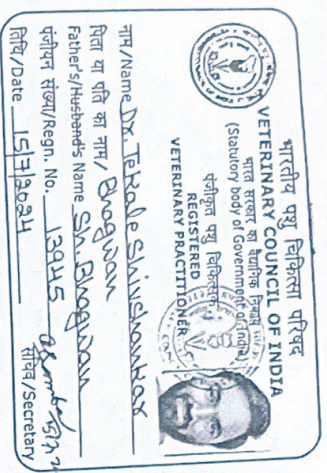 भारतीय पशु चिकित्सा परिषद
VETERINARY COUNCIL OF INDIA
भारत सरकार का वैधानिक निकाय
(Statutory body of Government of India)
पंजीकृत पशु चिकित्सक
REGISTERED
VETERINARY PRACTITIONER
नाम/Name Dr. Tekale Shivshankar
पिता या पति का नाम/ Bhagwan
Father's/Husband's Name Sh. Bhagwan
पंजीयन संख्या/Regn. No. 13945
तिथि/Date 15/7/2024
सचिव/Secretary